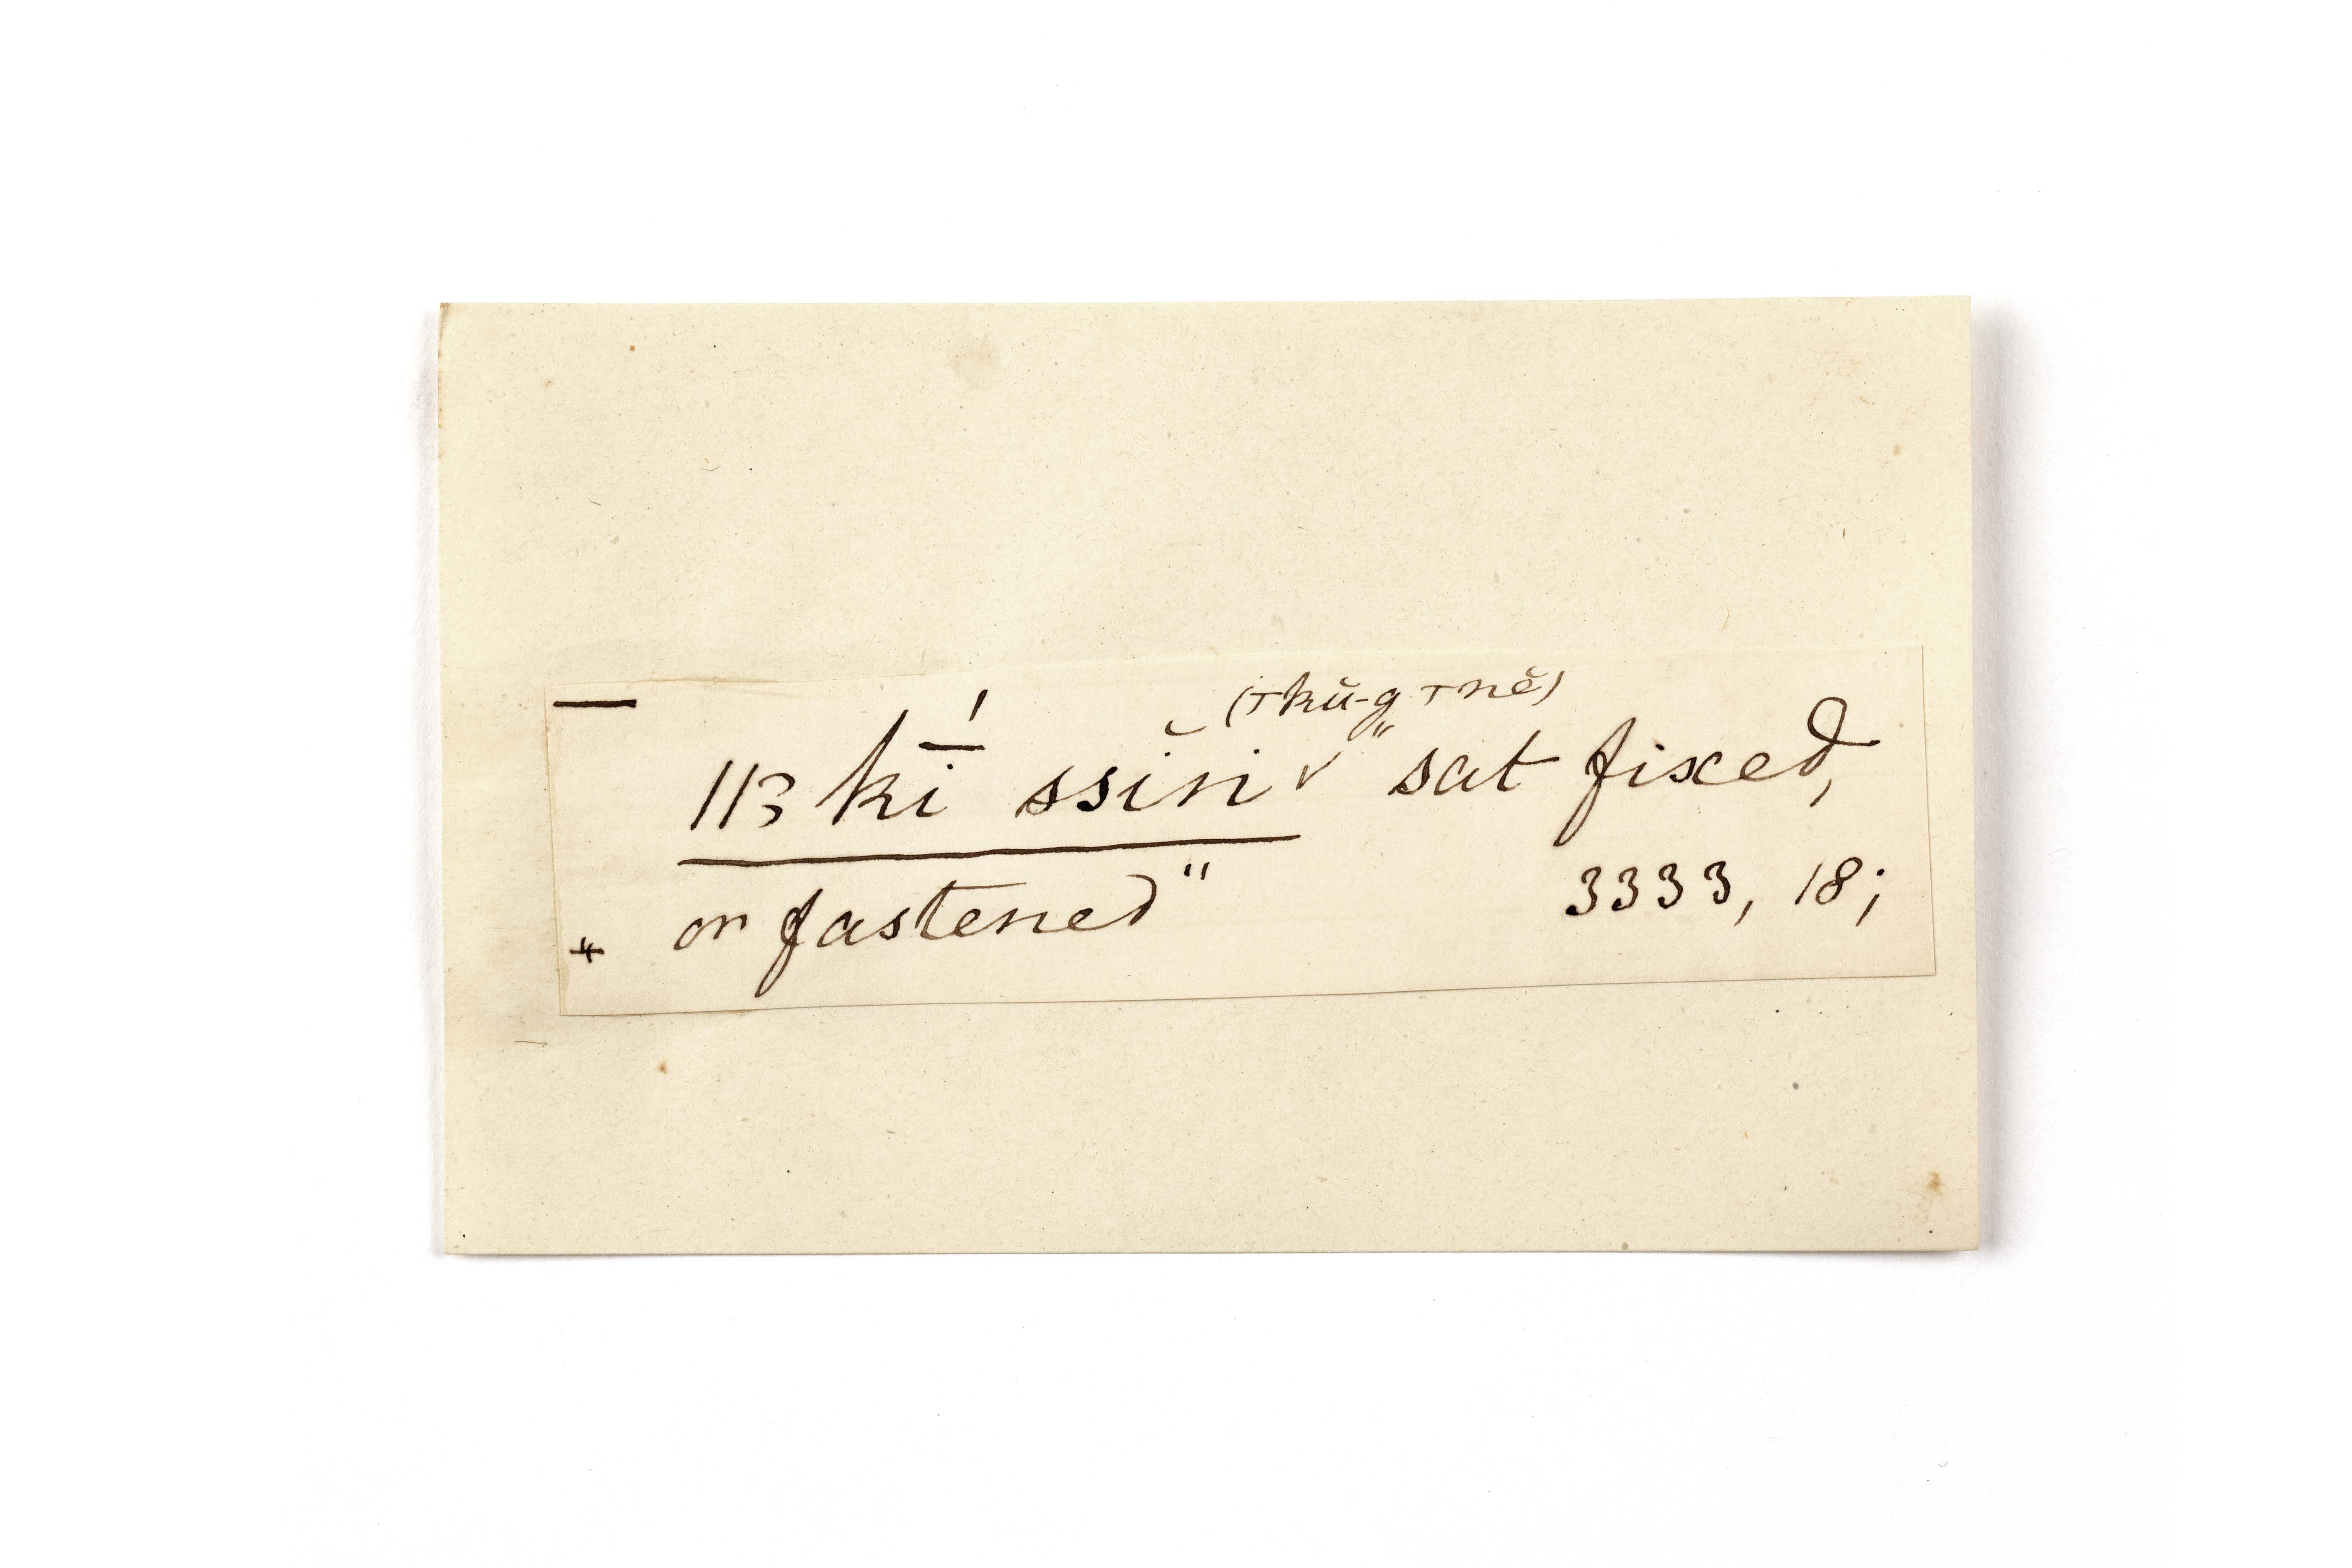 (⊤kŭ-g ⊤nĕ)
ǁkī́ ssĭn "sat fixed,
or fastened" 3333, 18;